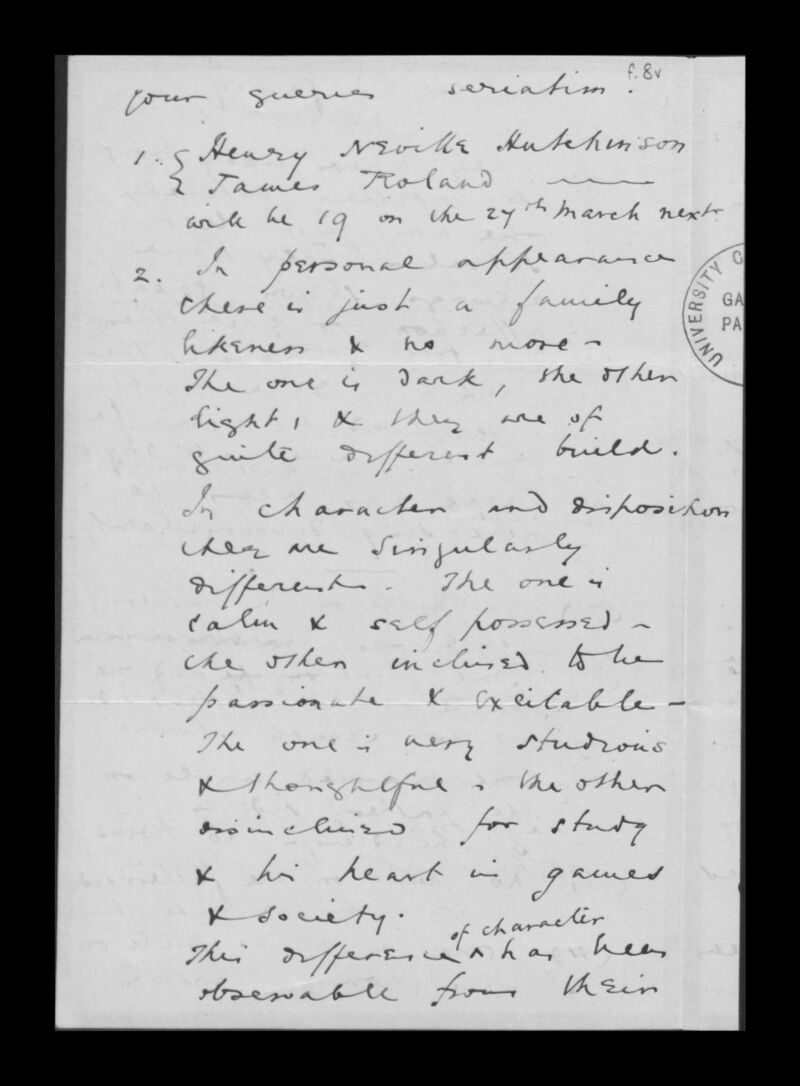 f. 8v
your queries seriatim.
1. { Henry Neville Hutchinson
{ James Roland ———
will be 19 on the 27th March next
2. In personal appearance
there is just a family
likeness & no more -
The one is dark, the other
light, & they are of
quite different build.
In character and disposition
they are singularly
different. The one is
calm & self possessed -
the other inclined to be
passionate & excitable -
The one is very studious
& thoughtful - the other
disinclined for study
& his heart in games
& society.
This difference ^ of character has been
observable from their
UNIVERSITY C
GA
PA